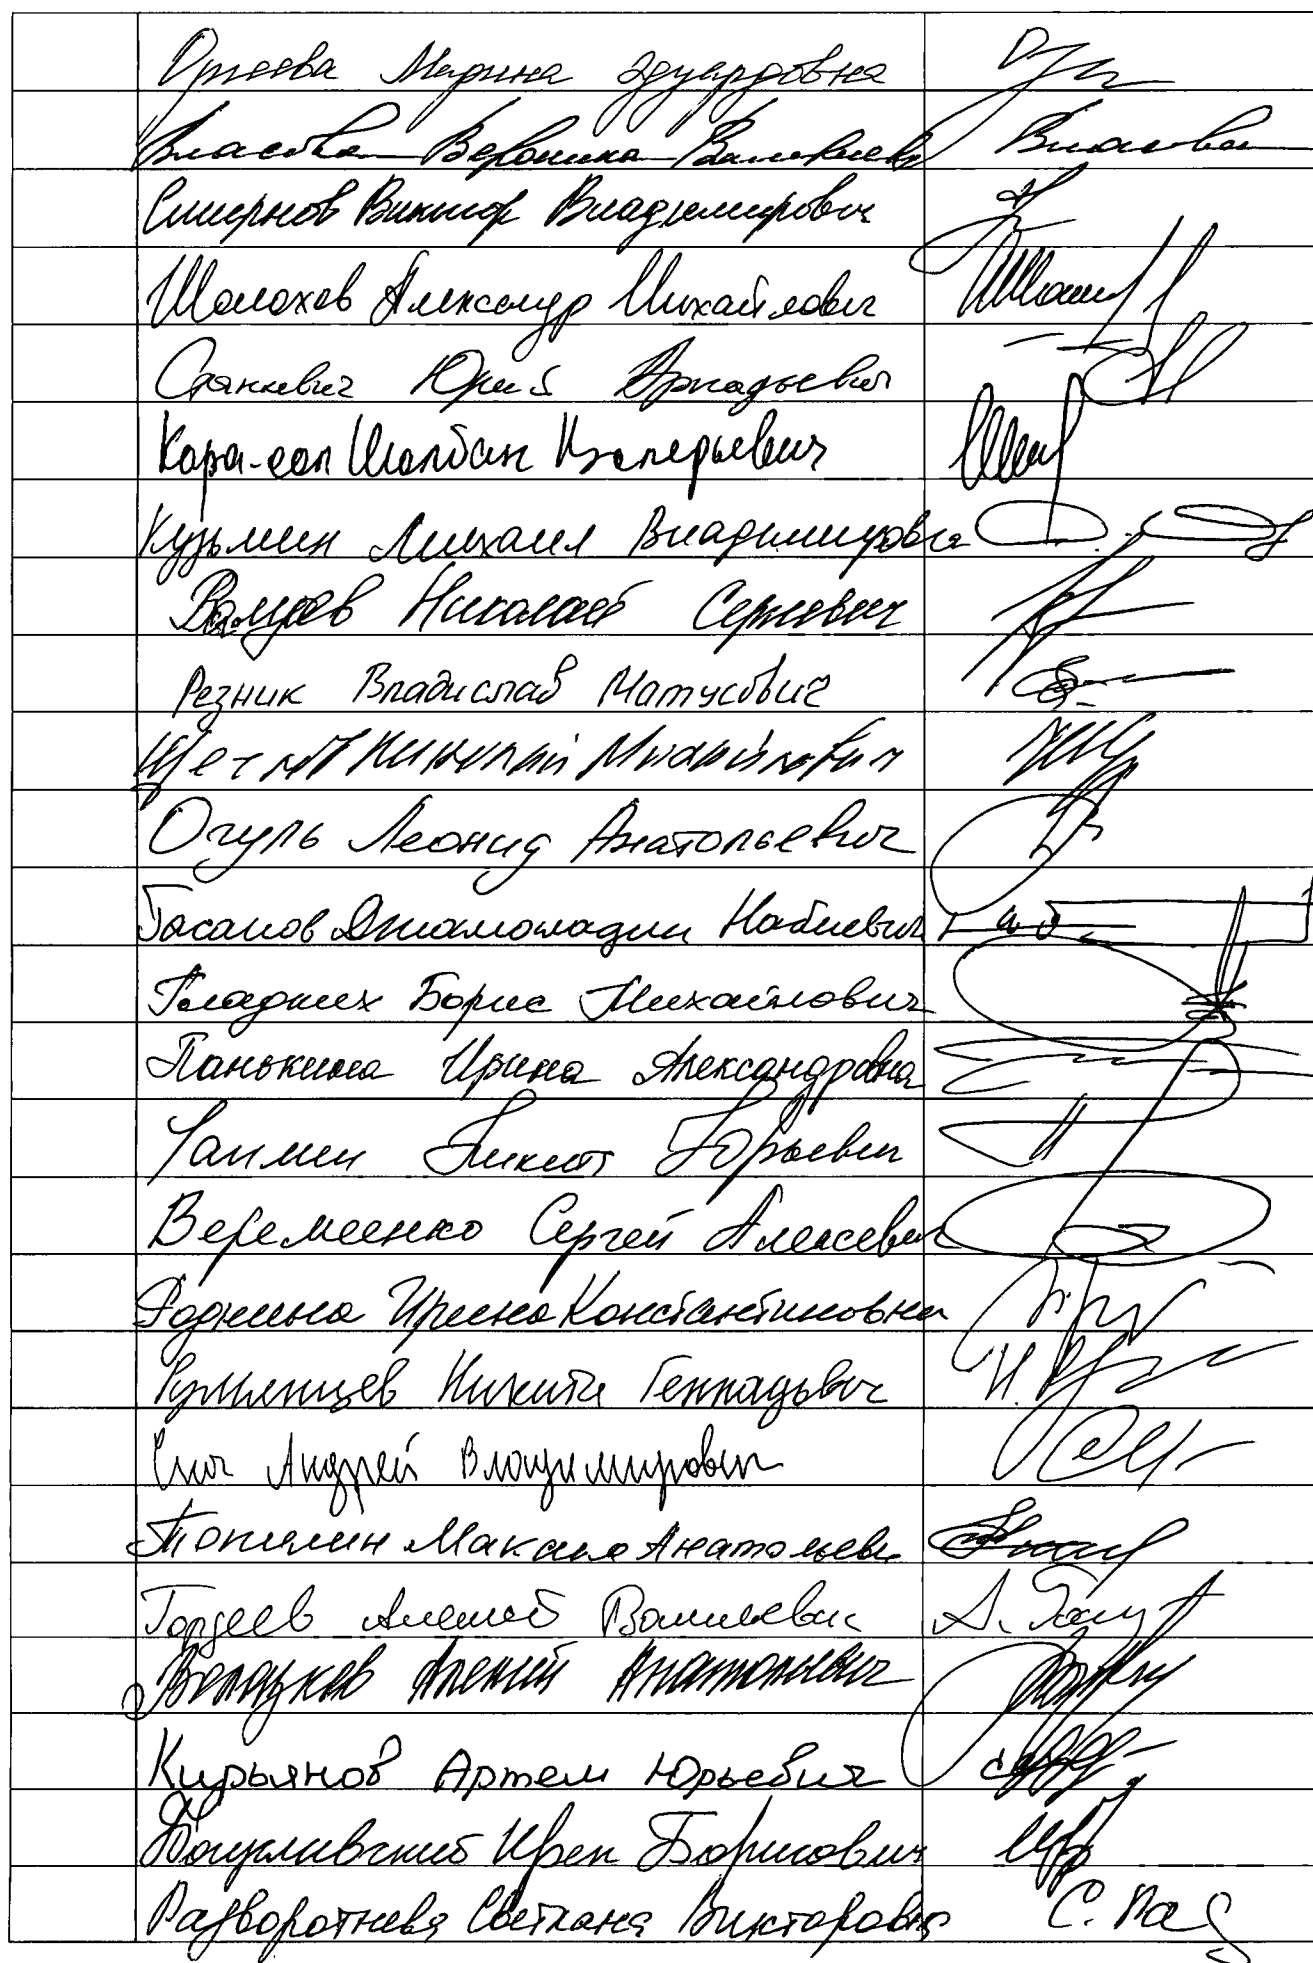 Оргеева Марина Эдуардовна
Власова Вероника Валериевна Власова
Смирнов Виктор Владимирович
Шолохов Александр Михайлович
Станкевич Юрий Аркадьевич
Кара-оол Шолбан Валерьевич
Кузьмин Михаил Владимирович
Валуев Николай Сергеевич
Резник Владислав Матусович
Николай Михайлович
Огуль Леонид Анатольевич
Гасанов Джамаладин Набиевич
Гладких Борис Михайлович
Панькина Ирина Александровна
Чаплин Никита Юрьевич
Веремеенко Сергей Алексеевич
Роднина Ирина Константиновна
Румянцев Никита Геннадьевич
Андрей Владимирович
Топилин Максим Анатольевич
Гордеев Алексей Васильевич
Алексей Анатольевич
Кирьянов Артем Юрьевич
Ирек Борисович
Разворотнева Светлана Викторовна С. Раз